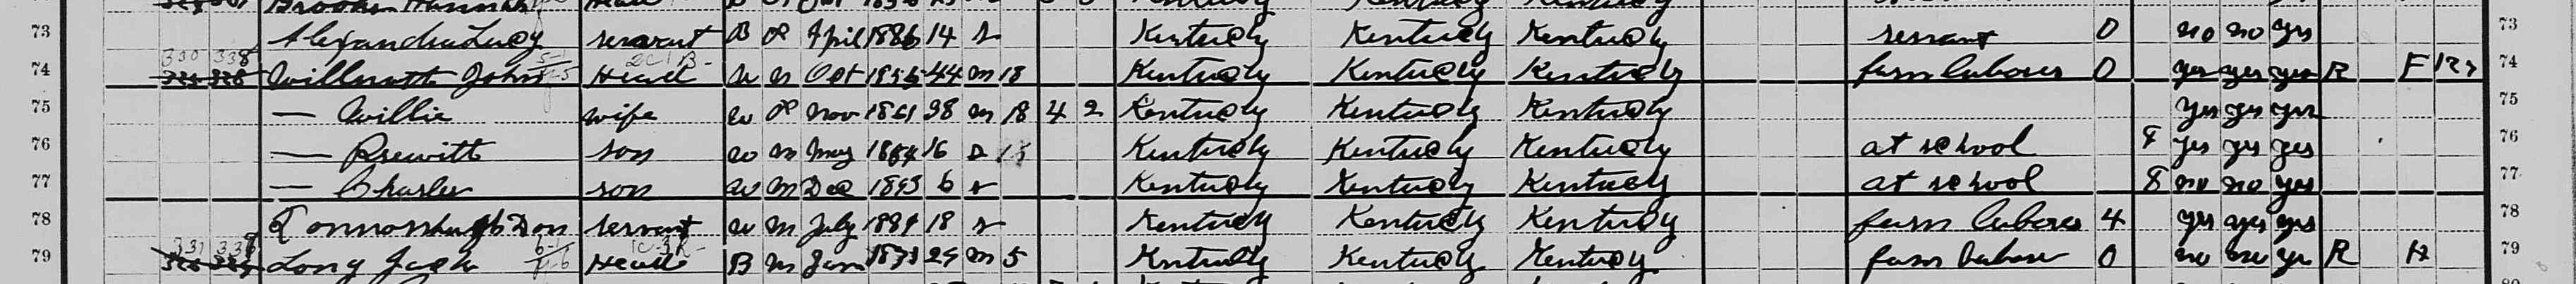 73 Alexandria Lucy servant B April 1886 14 S Kentucky Kentucky Kentucky servant 0 no no yes 73
330 338
74 Willmott John Head W M Oct 1855 44 M 18 Kentucky Kentucky Kentucky farm laborer 0 yes yes yes R F 127 74
75 — Willie wife W Nov 1861 38 M 18 4 2 Kentucky Kentucky Kentucky yes yes yes 75
76 — Prewitt son W M May 1884 16 S Kentucky Kentucky Kentucky at school 8 yes yes yes 76
77 — Charles son W M Dec 1893 6 S Kentucky Kentucky Kentucky at school 8 no no yes 77
78 Don servant W M July 18 S Kentucky Kentucky Kentucky farm laborer 4 yes yes yes 78
79 Long Jack Head B M M 5 Kentucky Kentucky Kentucky farm laborer 0 no no yes R H 79